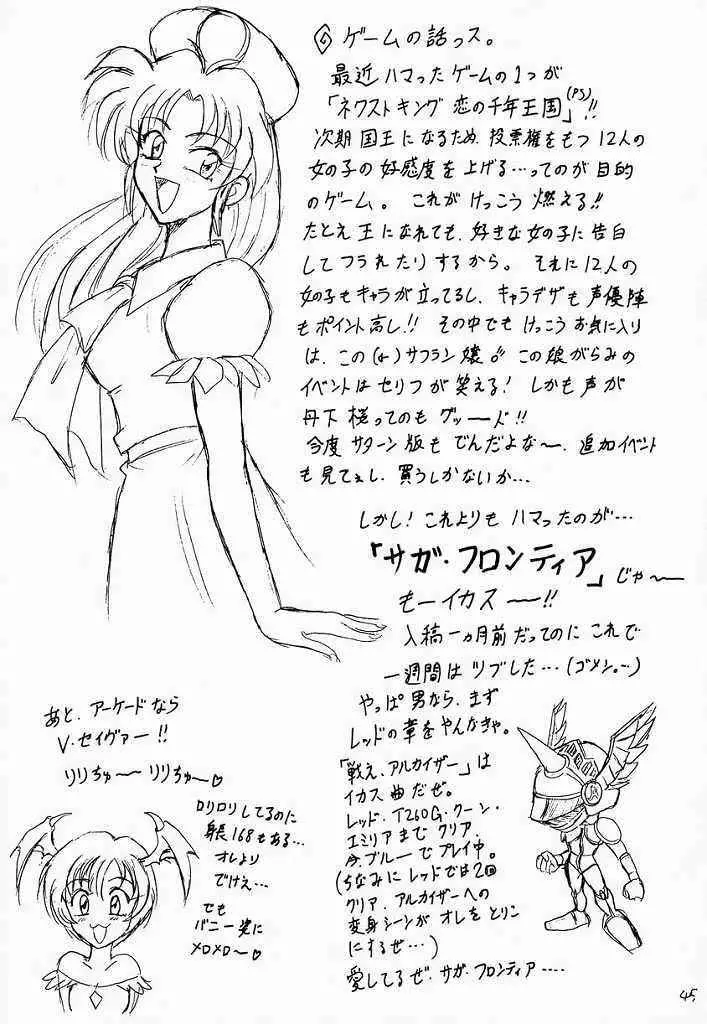 ◎ ゲームの話っス。
最近ハマったゲームの1つが
「ネクストキング 恋の千年王国」(PS)!!
次期国王になるため、投票権をもつ12人の
女の子の好感度を上げる…ってのが目的
のゲーム。これがけっこう燃える!!
たとえ王になれても、好きな女の子に告白
してフラれたりするから。それに12人の
女の子もキャラが立ってるし、キャラデザも声優陣
もポイント高し!! その中でもけっこうお気に入り
は、この(←)サフラン嬢。この娘がらみの
イベントはセリフが笑える! しかも声が
丹下桜ってのもグッーード!!
今度サターン版もでんだよな〜、追加イベント
も見てぇし、買うしかないか…
しかし! これよりもハマったのが…
「サガ・フロンティア」じゃ〜
もーイカス〜!!
入稿一ヵ月前だってのにこれで
一週間はツブした…(ゴメン。…)
やっぱ男なら、まず
レッドの章をやんなきゃ。
「戦え、アルカイザー」は
イカス曲だぜ。
レッド・T260G・クーン・
エミリアまでクリア、
今、ブルーでプレイ中。
(ちなみにレッドでは2回
クリア、アルカイザーへの
変身シーンがオレをとりこ
にするぜ…)
愛してるぜ、サガ・フロンティア‥‥
あと、アーケードなら
V・セイヴァー!!
リリちゅ〜リリちゅ〜♡
ロリロリしてるのに
身長168もある…
オレより
でけえ…
でも
バニー姿に
メロメロ〜♡
45.